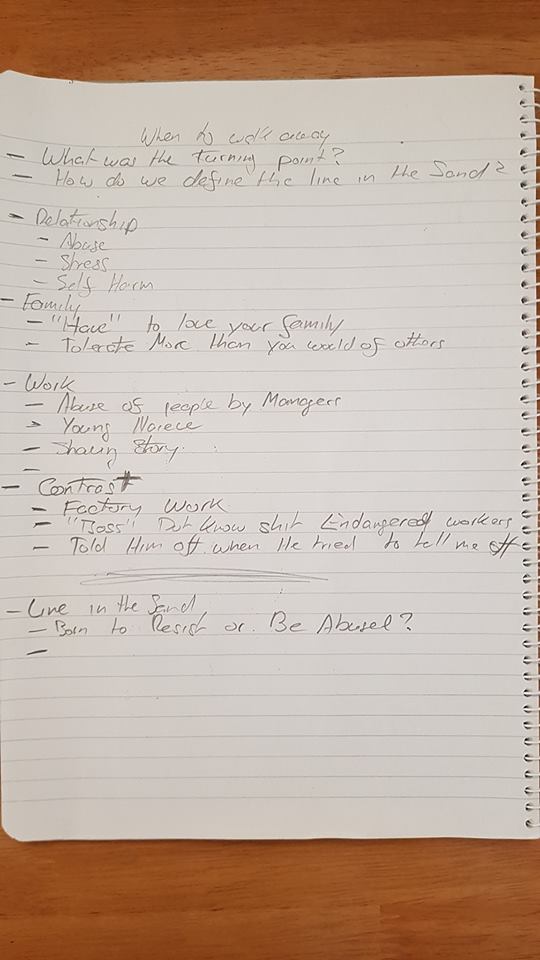 When to walk away
- What was the turning point?
- How do we define the line in the Sand?
- Relationship
- Abuse
- Stress
- Self Harm
- Family
- "Have" to love your family
- Tolerate More than you would of others
- Work
- Abuse of people by Managers
- Young
- Story
-
- Contrast
- Factory Work
- "Boss" Didt know shit Endangered workers
- Told Him off when He tried to tell me off
- Line in the Sand
- Born to Resist or Be Abused?
-